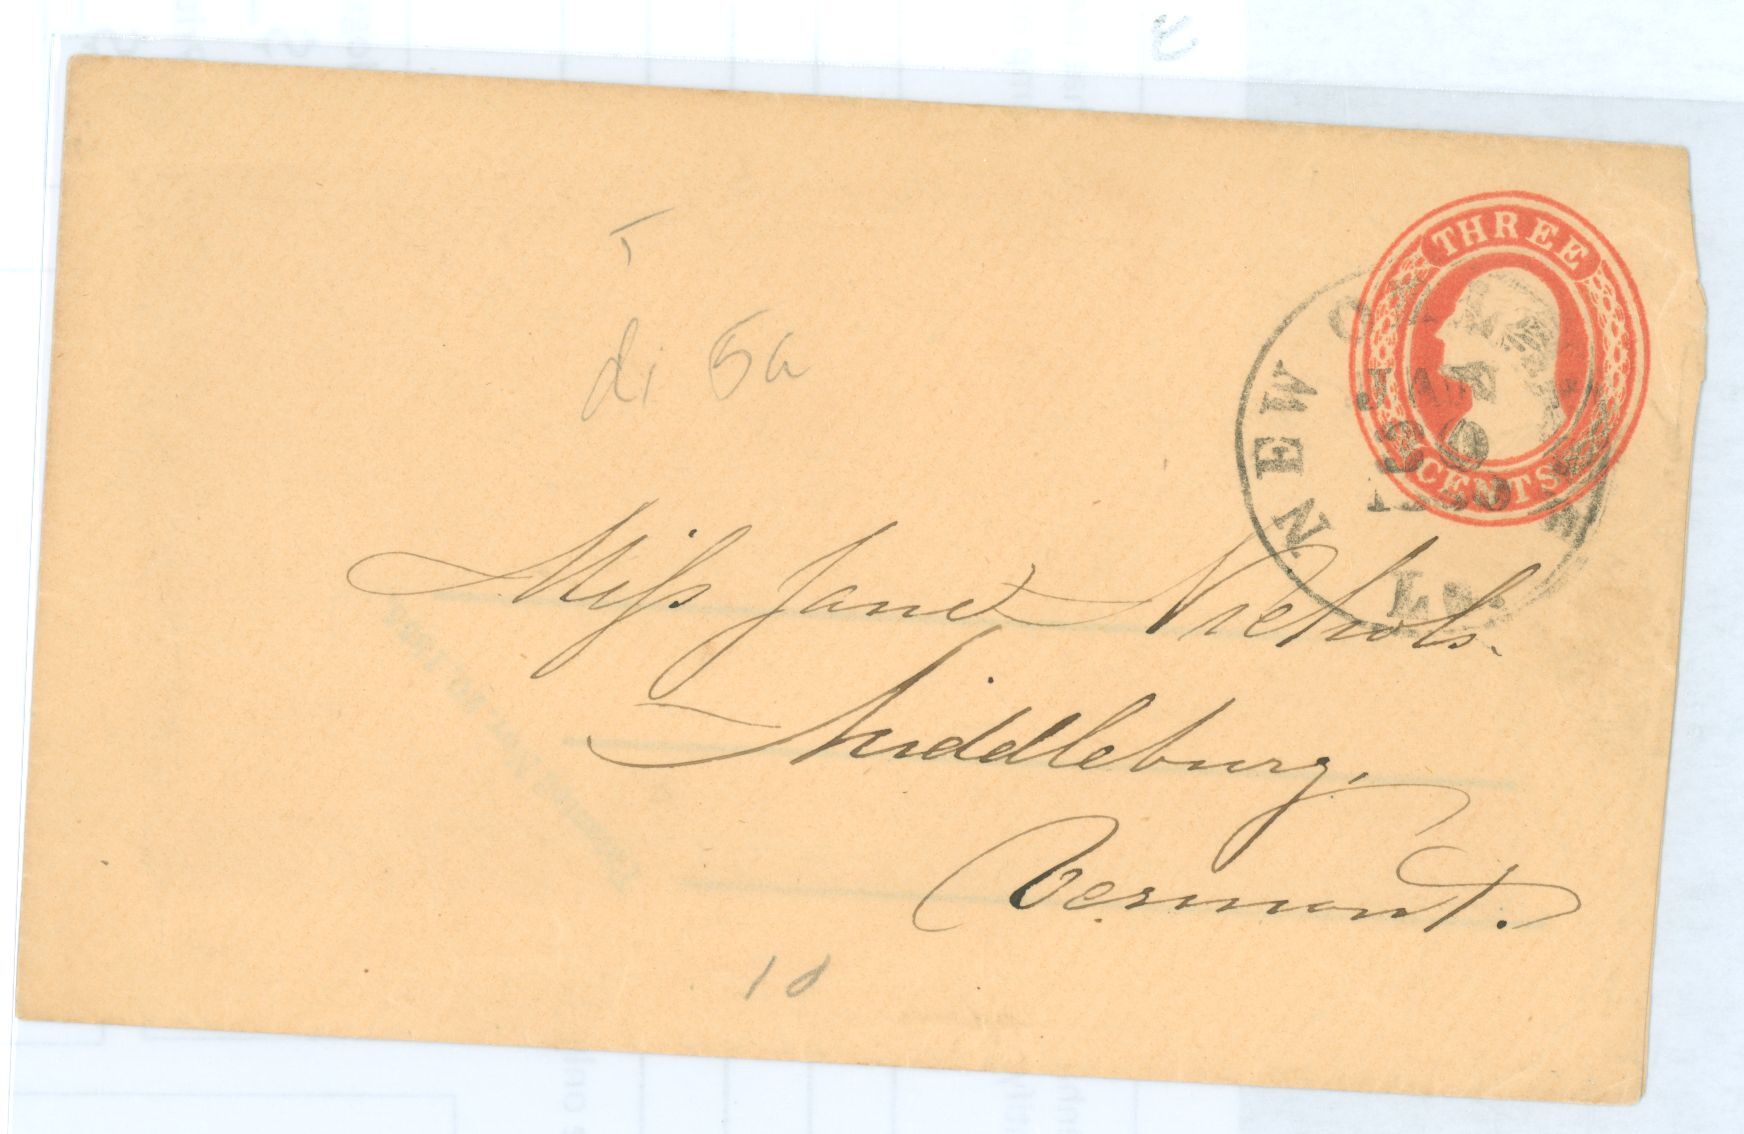 THREE
CENTS
NEW OR
JAN
30
La.
T
di 5a
Miss Jane Nichols.
Middleburg,
Vermont.
10